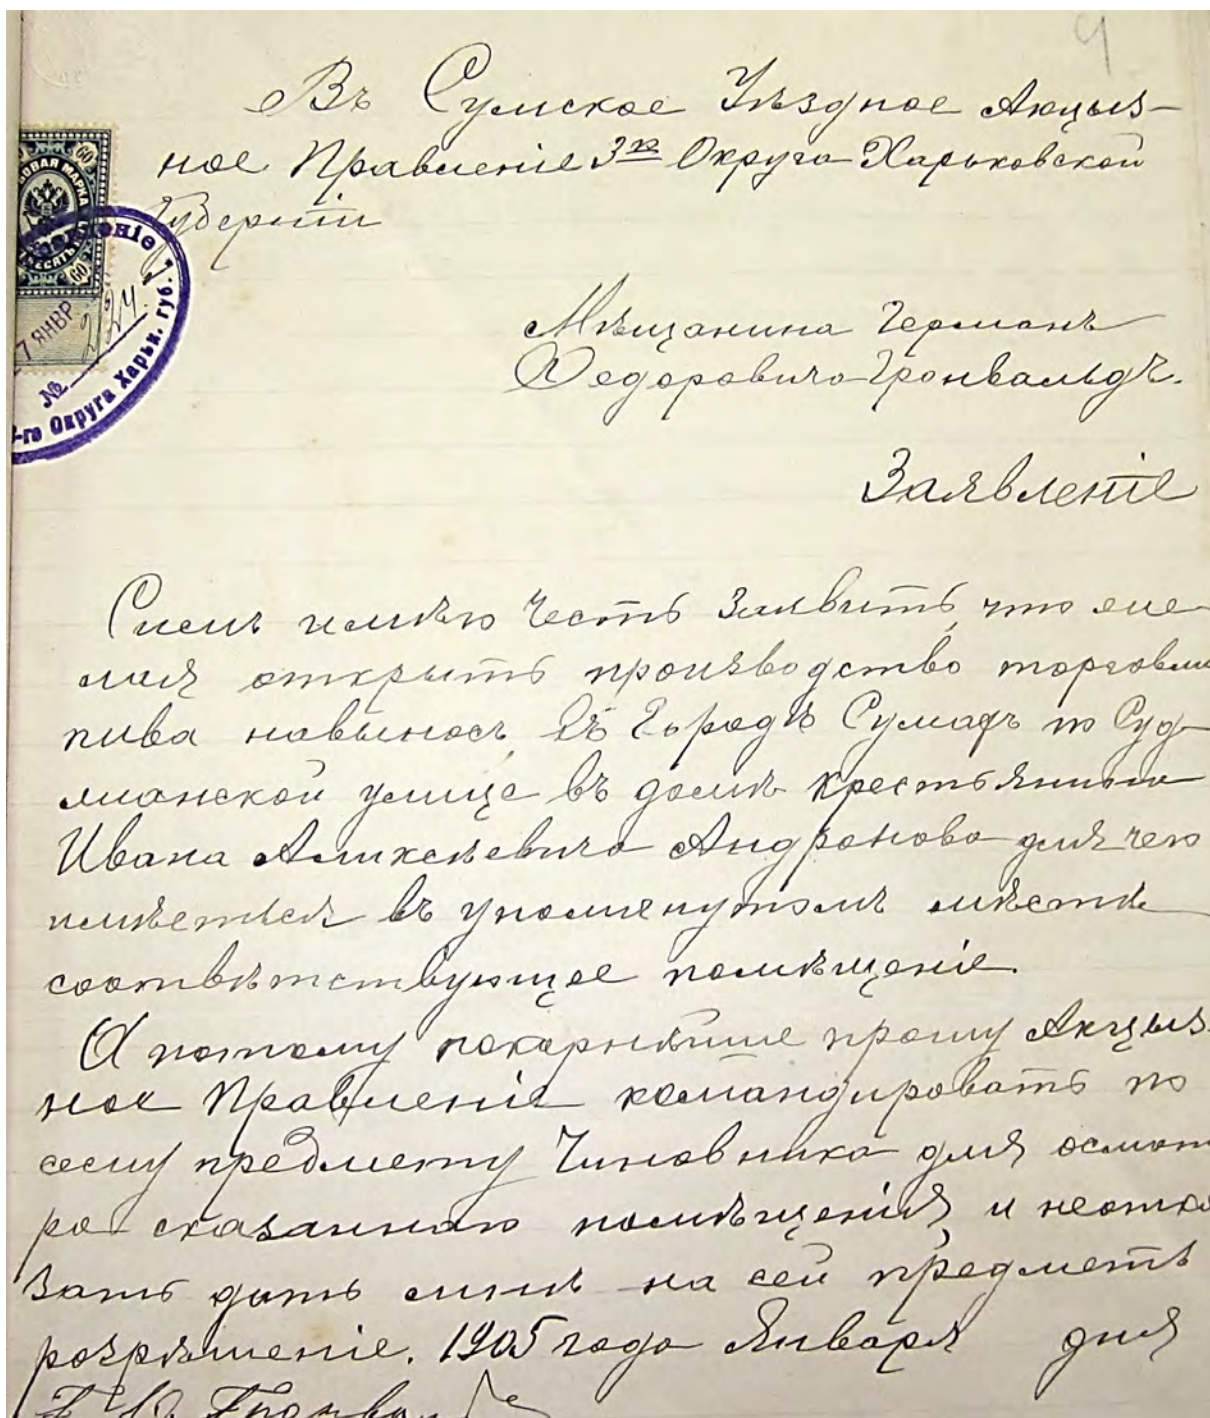 4
Въ Сумское Уѣздное Акцыз-
ное Правленіе 3го Округа Харьковской
Губерніи
60
ОВАЯ МАРКА
ЕСЯТЪ
60
7 ЯНВР
224
№
-го Округа Харьк. губ.
Мѣщанина Германъ
Федоровича Гронвальдъ.
Заявленіе
Симъ имѣю честь заявить, что же-
лая открыть производство торговли
пива навыносъ, въ городѣ Сумахъ по Суд-
жанской улице въ домѣ крестьянина
Ивана Аликсѣевича Андронова для чего
имѣеться въ упомянутомъ мѣстѣ
соотвѣтствующее помѣщеніе.
А потому покорнѣйше прошу Акцыз-
ное Правленіе командировать по
сему предмету Чиновника для осмот
ра сказанного помѣщенія, и неотка
зать дать мнѣ на сей предметъ
розрѣшеніе. 1905 года Января дня